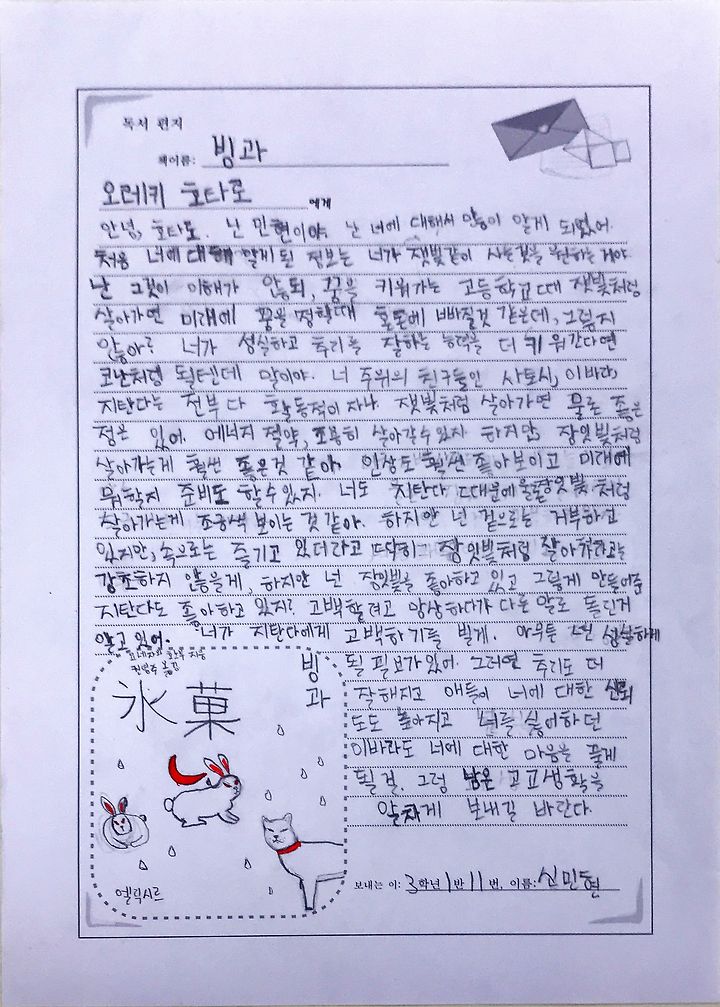 독서 편지
책이름: 빙과
오레키 호타로 에게
안녕, 호타로. 난 민현이야. 난 너에 대해서 많이 알게 되었어.
처음 너에 대해 알게 된 정보는 너가 잿빛같이 사는것을 원하는 거야.
난 그것이 이해가 안돼, 꿈을 키워가는 고등학교때 잿빛처럼
살아가면 미래에 꿈을 정할때 혼돈에 빠질것 같은데, 그렇지
않아? 너가 성실하고 추리를 잘하는 능력을 더 키워간다면
코난처럼 될텐데 말이야. 너 주위의 친구들인 사토시, 이바라,
지탄다는 전부 다 활동적이자나. 잿빛처럼 살아가면 물론 좋은
점은 있어. 에너지 절약, 조용히 살아갈수있지 하지만, 장밋빛처럼
살아가는게 훨씬 좋은것 같아. 인상도 훨씬 좋아보이고 미래에
뭐할지 준비도 할수있지. 너도 지탄다 때문에 장밋빛처럼
살아가는게 조금씩 보이는 것 같아. 하지만 넌 겉으로는 거부하고
있지만, 속으로는 즐기고 있더라고 딱히 장밋빛처럼 살아가라고는
강조하지 않을게, 하지만 넌 장밋빛을 좋아하고 있고 그렇게 만들어준
지탄다도 좋아하고 있지? 고백할려고 망상하다가 다른 말로 돌린거
알고 있어. 너가 지탄다에게 고백하기를 빌게. 아무튼 넌 성실하게
될 필요가있어. 그러면 추리도 더
잘해지고 애들이 너에 대한 신뢰
도도 높아지고 너를 싫어하던
이바라도 너에 대한 마음을 풀게
될 걸. 그럼 남은 고교생활을
알차게 보내길 바란다.
요네자와 호노부 지음
권영주 옮김
빙과
氷菓
엘릭시르
보내는 이: 3학년 1반 11번, 이름: 신민현